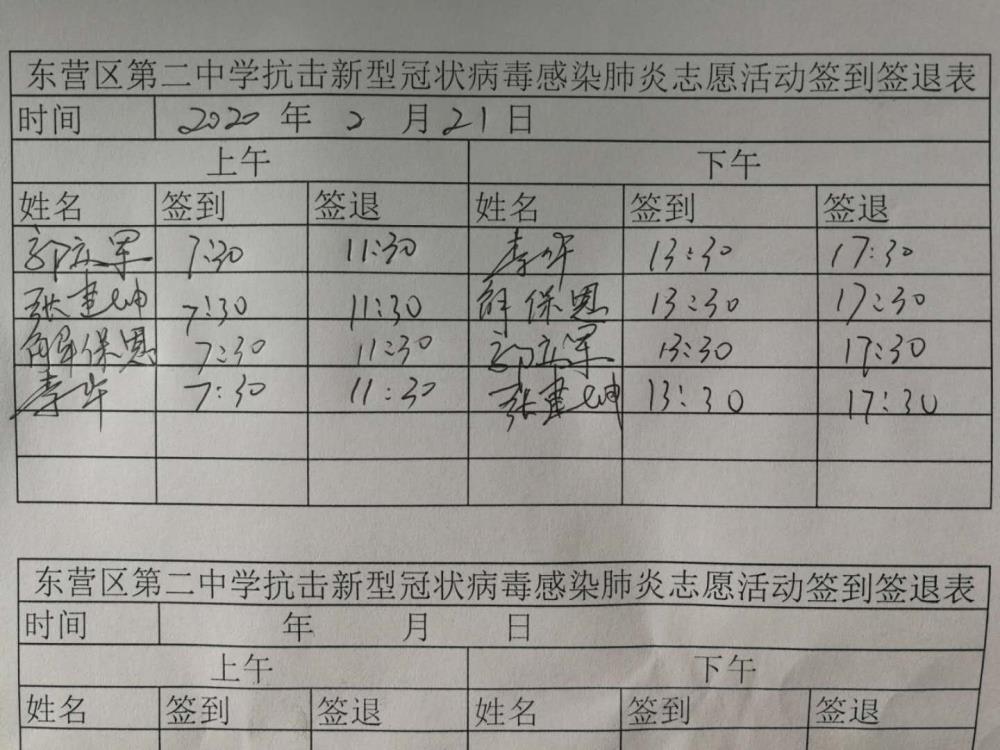 东营区第二中学抗击新型冠状病毒感染肺炎志愿活动签到签退表
时间 2020 年 2 月 21 日
上午 下午
姓名 签到 签退 姓名 签到 签退
郭立军 7:30 11:30 李华 13:30 17:30
张建坤 7:30 11:30 解保恩 13:30 17:30
解保恩 7:30 11:30 郭立军 13:30 17:30
李华 7:30 11:30 张建坤 13:30 17:30
东营区第二中学抗击新型冠状病毒感染肺炎志愿活动签到签退表
时间 年 月 日
上午 下午
姓名 签到 签退 姓名 签到 签退